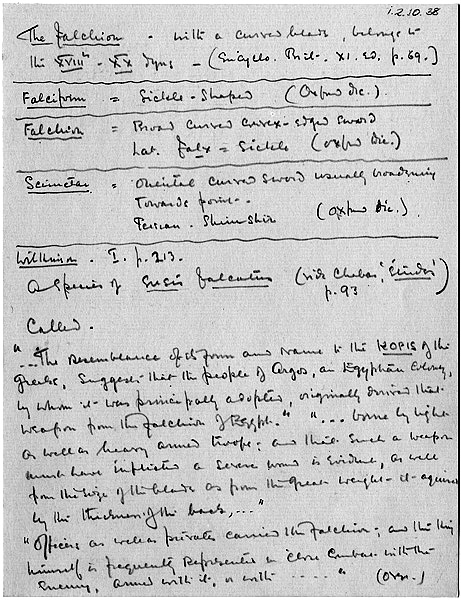 i.2.10.38
The Falchion - with a curved blade, belongs to
the XVIIIth - XX Dyns - (Encyclo. Brit. XI. ed. p. 69.)
Falciform = Sickle-Shaped (Oxford dic.)
Falchion = Broad curved convex-edged sword
Lat. falx = Sickle (Oxford dic.)
Scimetar = Oriental curved sword usually broadening
Towards point.
Persian. Shimshir (Oxford dic.)
Wilkinson. I. p. 213.
A species of Ensis falcatus (vide Chabas, 'Études'
p. 93)
Called.
"... The resemblance of its form and name to the KOPIS of the
Greeks, suggests that the people of Argos, an Egyptian Colony,
by whom it was principally adopted, originally derived that
weapon from the falchion of Egypt." "... borne by light
as well as heavy armed troops; and that such a weapon
must have inflicted a severe wound is evident, as well
from the size of the blade as from the great weight it acquired
by the thickness of the back, ..."
"Officers as well as privates carried the falchion; and the king
himself is frequently represented in close combat with the
Enemy, armed with it, or with ..... "
(Over.)